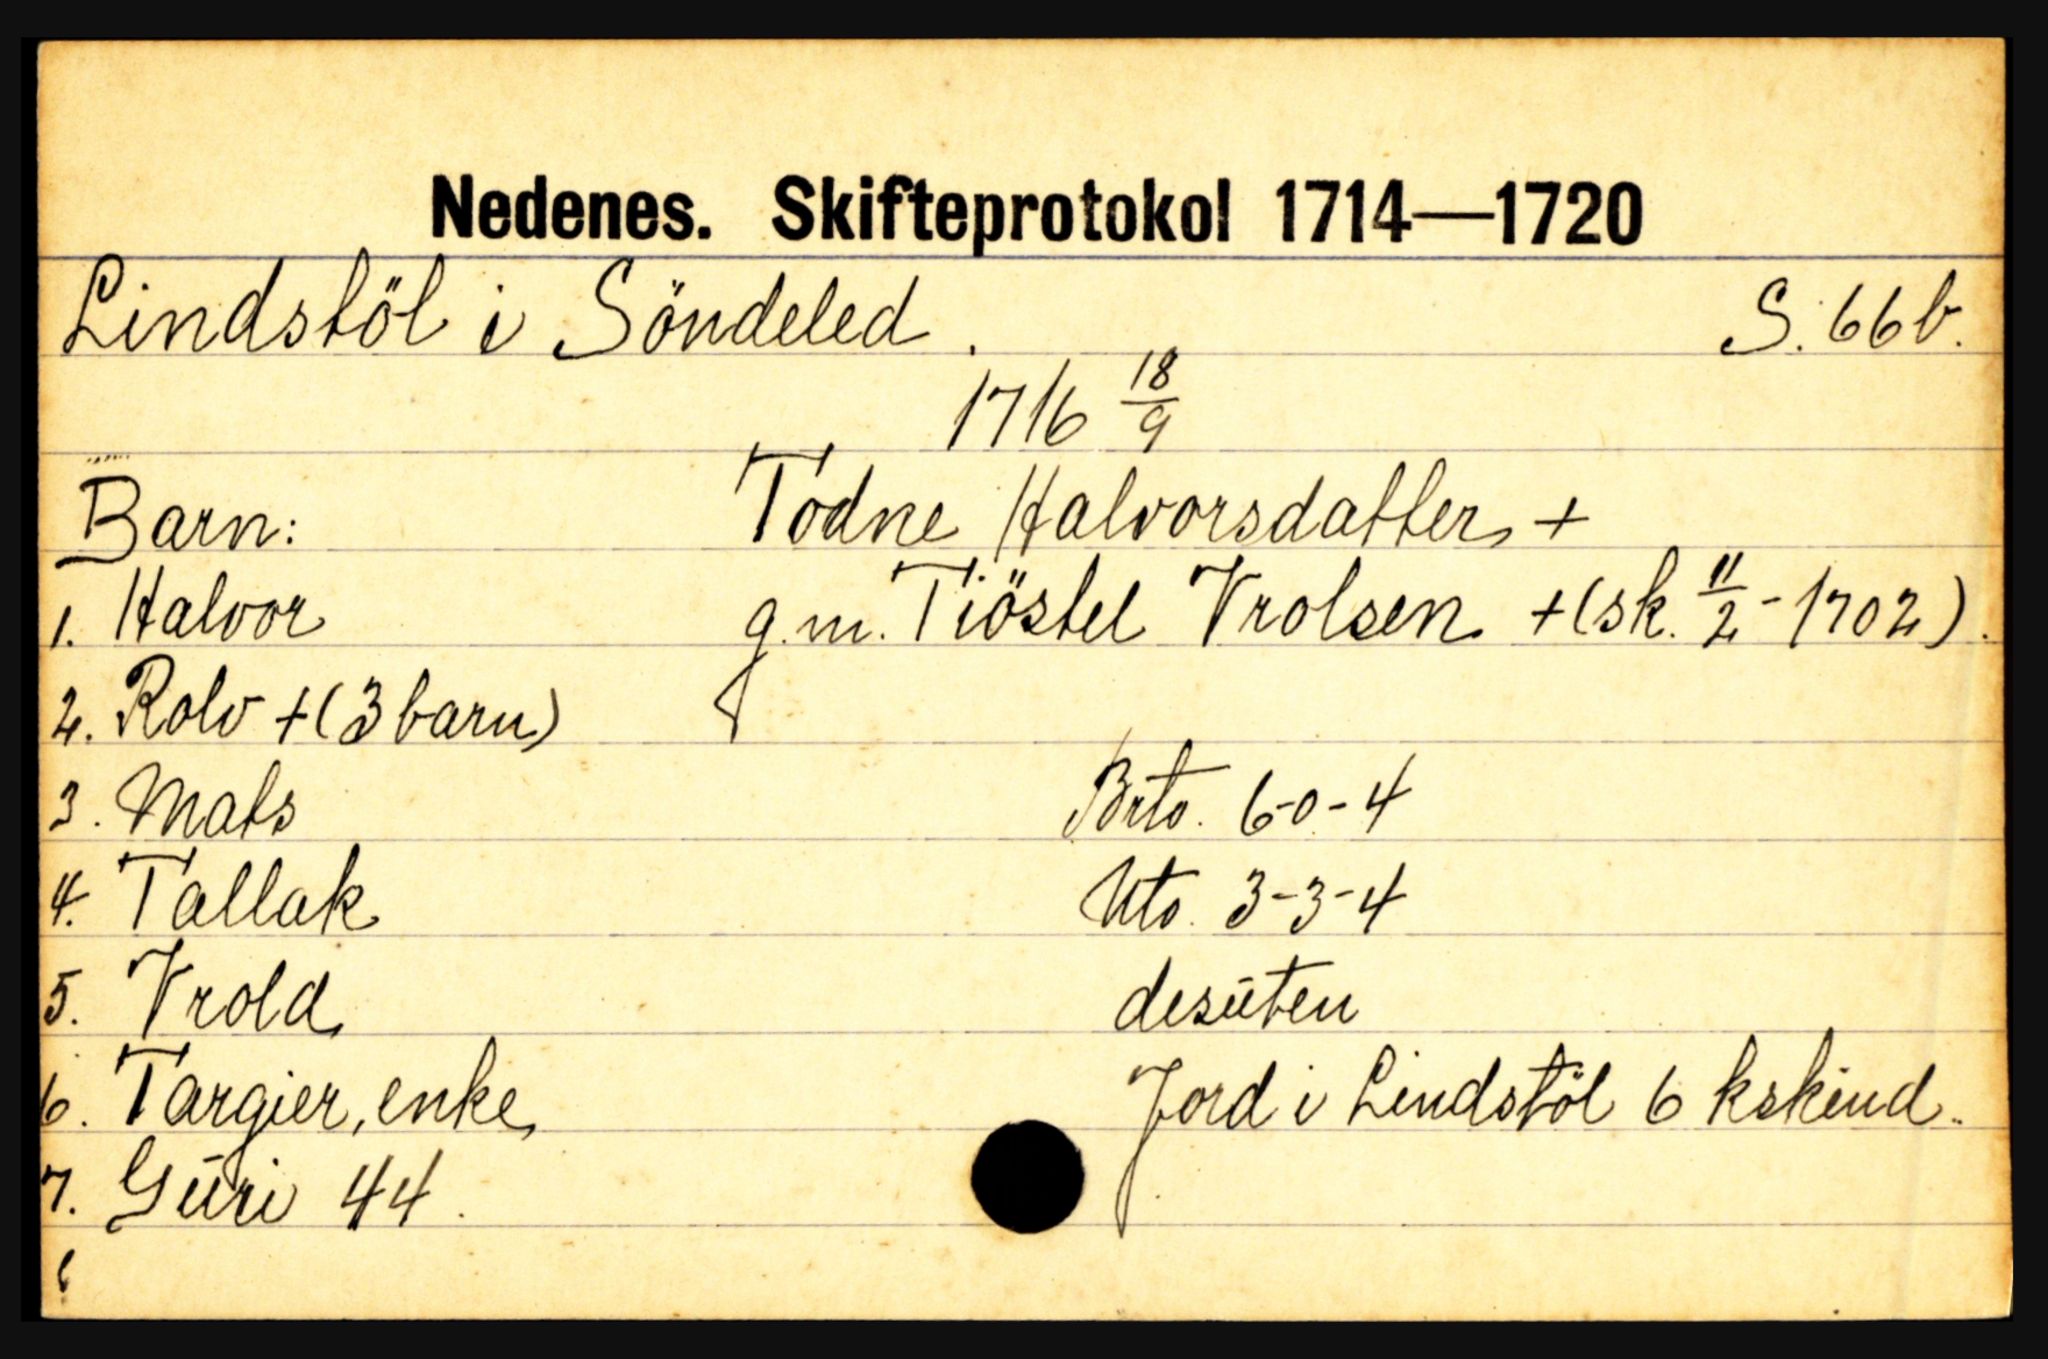 Nedenes. Skifteprotokol 1714—1720
Lindstöl i Söndeled. S. 66b.
1716 18/9
Barn: Todne Halvorsdatter +
1. Halvor g.m. Tiöstel Vrolsen +(sk. 11/2-1702).
2. Rolv +(3 barn)
3. Mats Brto. 6-0-4
4. Tallak Nto. 3-3-4
5. Vrold desūten
6. Targier, enke Jord i Lindstöl 6 kskind.
7. Gūri 44.